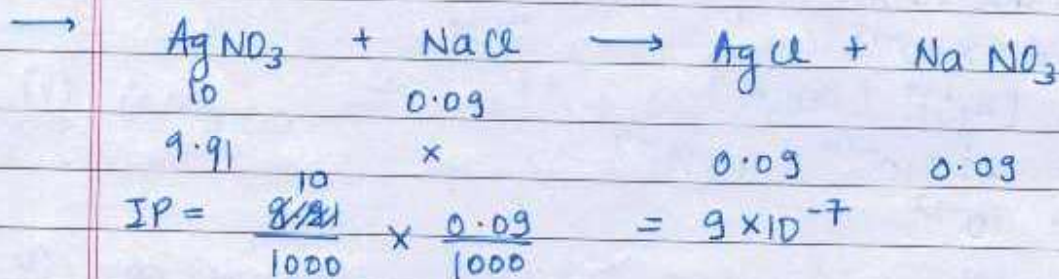 → AgNO₃ + NaCl → AgCl + NaNO₃
10 0.09
9.91 × 0.09 0.09
10
IP = 9.91/1000 × 0.09/1000 = 9 × 10⁻⁷